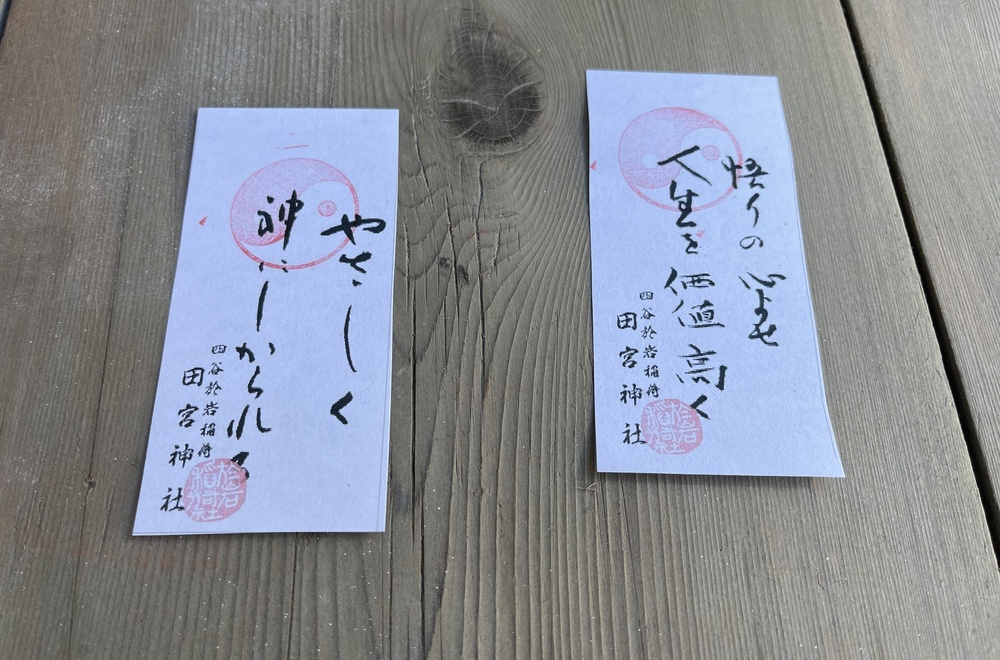 やさしく
神にしかられる
四谷於岩稲荷
田宮神社
悟りの心よせ
人生を価値高く
四谷於岩稲荷
田宮神社